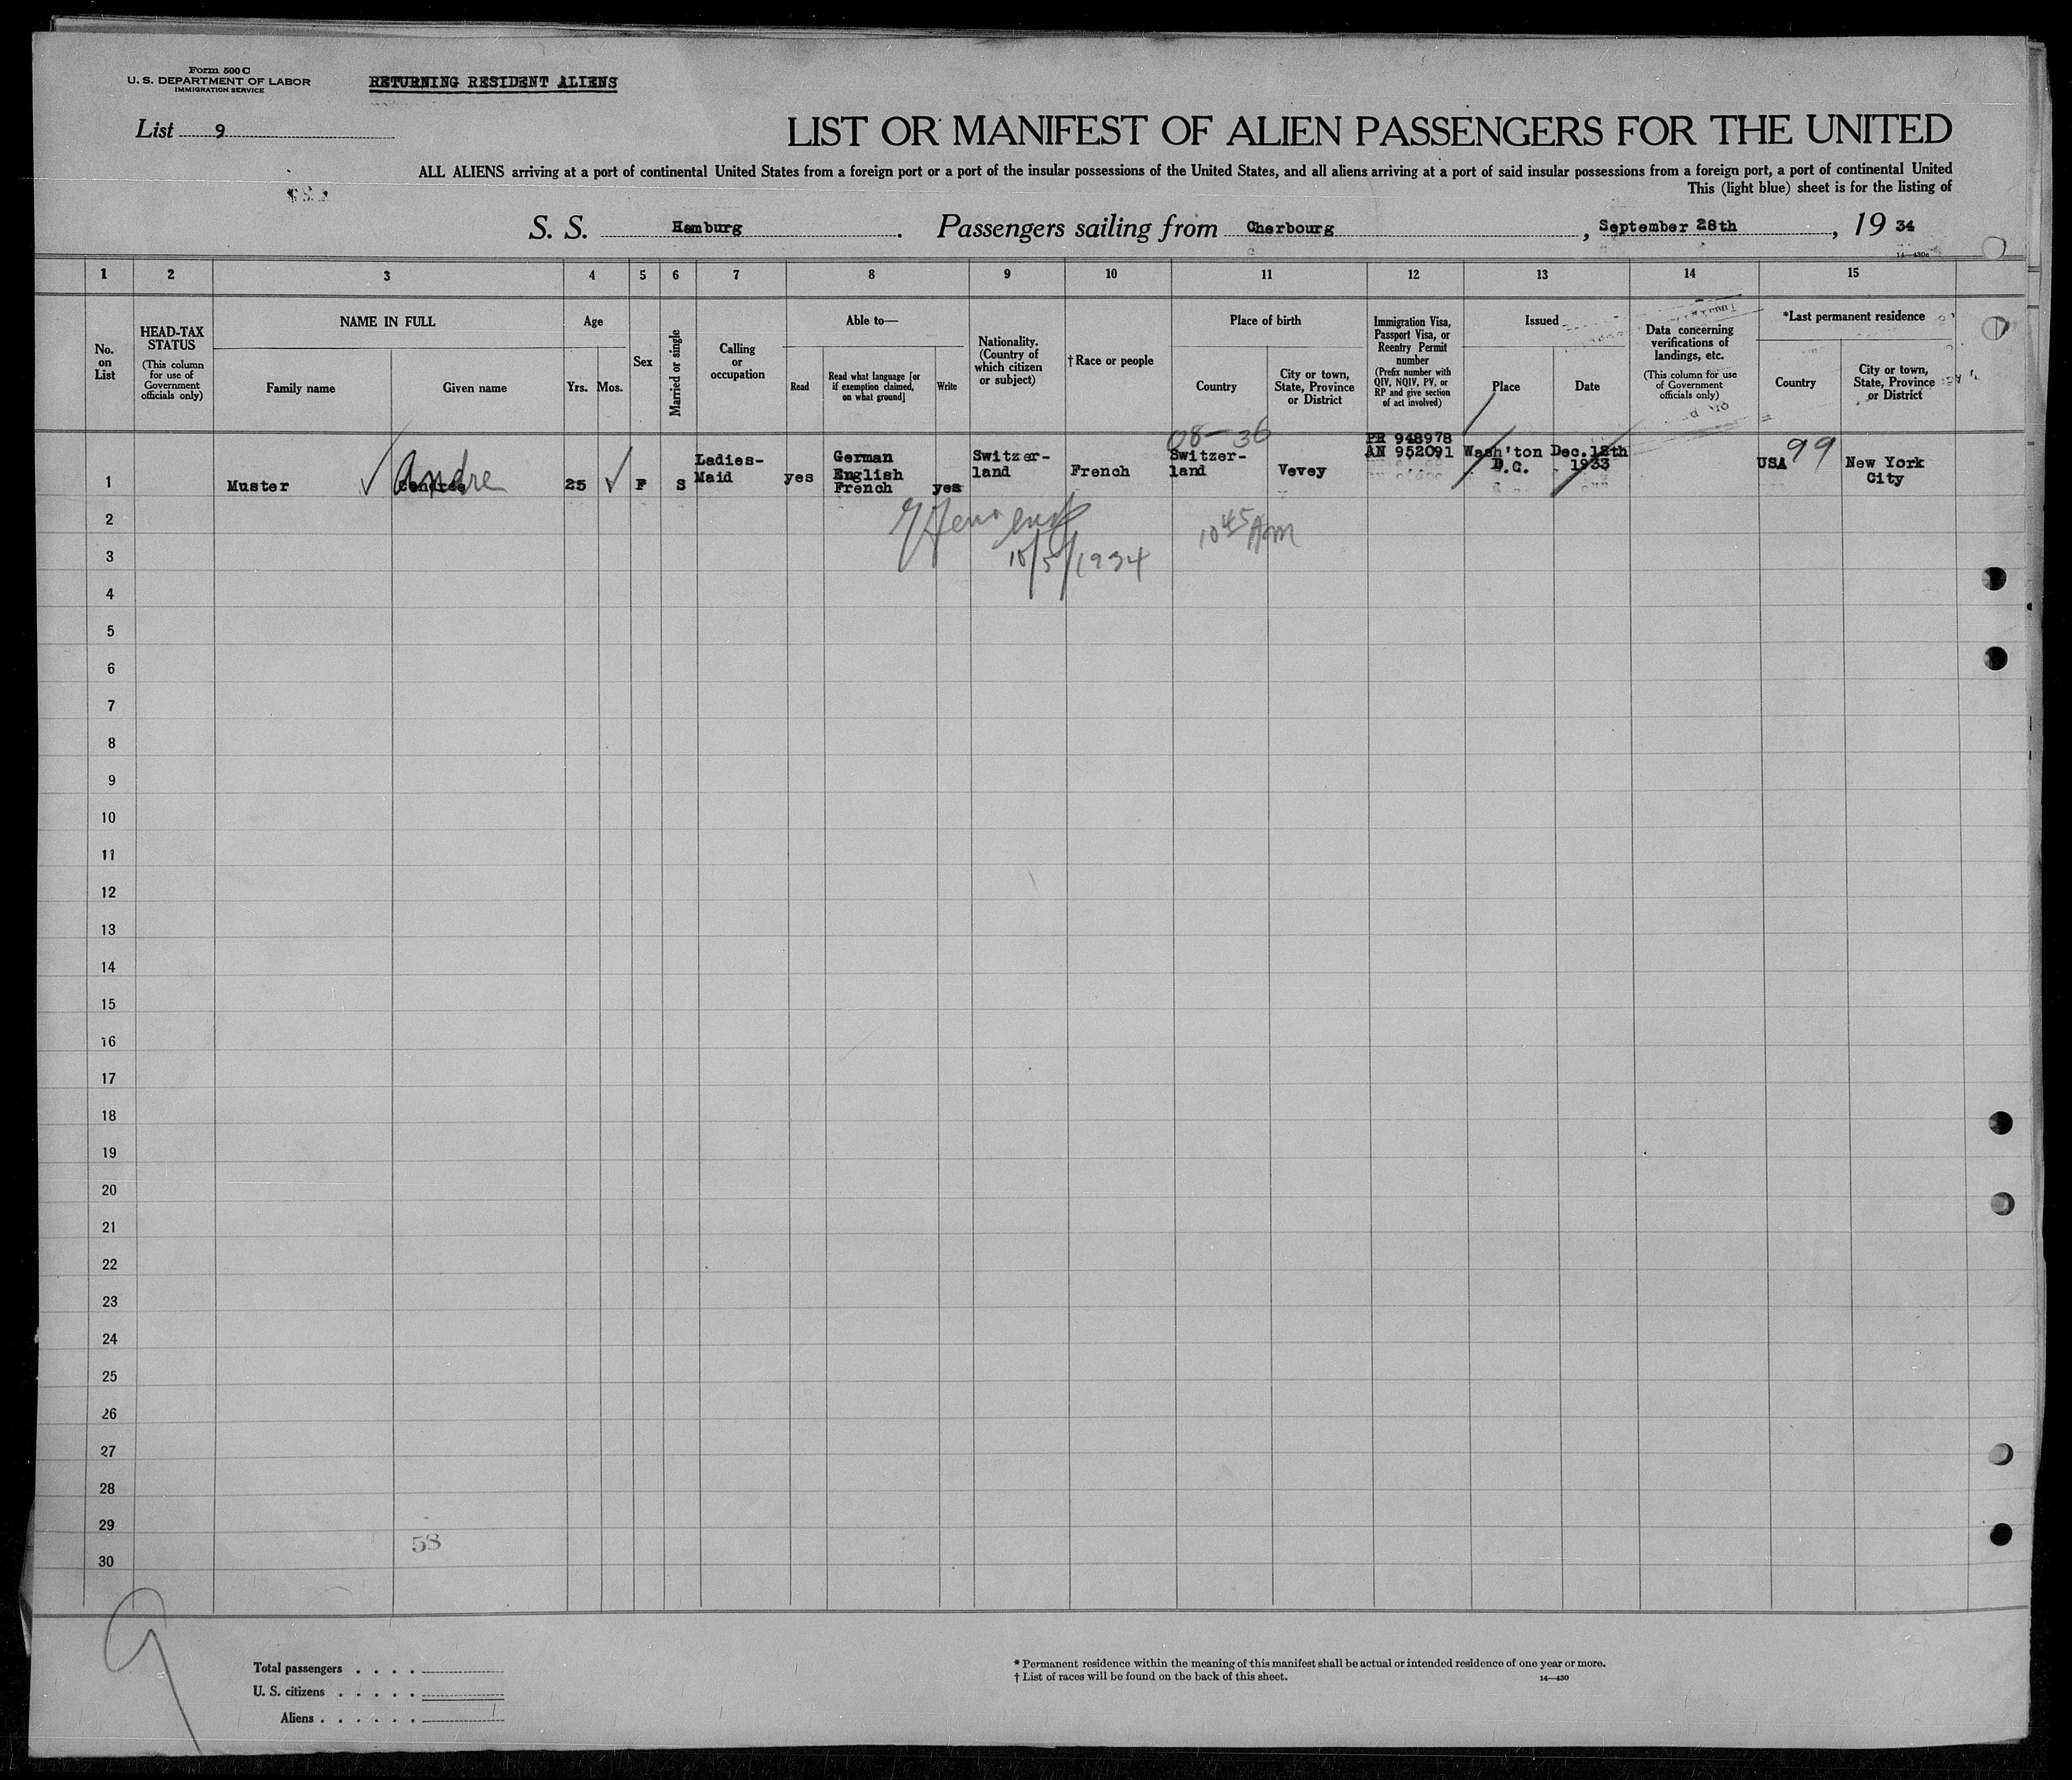 Form 500 C
U. S. DEPARTMENT OF LABOR
IMMIGRATION SERVICE
RETURNING RESIDENT ALIENS
List 9
LIST OR MANIFEST OF ALIEN PASSENGERS FOR THE UNITED
ALL ALIENS arriving at a port of continental United States from a foreign port or a port of the insular possessions of the United States, and all aliens arriving at a port of said insular possessions from a foreign port, a port of continental United
This (light blue) sheet is for the listing of
S. S. Hamburg. Passengers sailing from Cherbourg, September 28th, 19 34
14—430c
1 2 3 4 5 6 7 8 9 10 11 12 13 14 15
No. on List
HEAD-TAX STATUS
(This column for use of Government officials only)
NAME IN FULL
Family name
Given name
Age
Yrs.
Mos.
Sex
Married or single
Calling or occupation
Able to—
Read
Read what language [or if exemption claimed, on what ground]
Write
Nationality. (Country of which citizen or subject)
†Race or people
Place of birth
Country
City or town, State, Province or District
Immigration Visa, Passport Visa, or Reentry Permit number
(Prefix number with QIV, NQIV, PV, or RP and give section of act involved)
Issued
Place
Date
Data concerning verifications of landings, etc.
(This column for use of Government officials only)
*Last permanent residence
Country
City or town, State, Province or District
1
Muster
Andre
25
F
S
Ladies-
Maid
yes
German
English
French
yes
Switzer-
land
French
08-36
Switzer-
land
Vevey
PR 948978
AN 952091
Wash'ton
D.C.
Dec.12th
1933
USA
99
New York
City
2
10 45 Am
3
10/5/1934
4
5
6
7
8
9
10
11
12
13
14
15
16
17
18
19
20
21
22
23
24
25
26
27
28
29
58
30
9
Total passengers . . . .
U. S. citizens . . . . .
Aliens . . . . . . 1
* Permanent residence within the meaning of this manifest shall be actual or intended residence of one year or more.
† List of races will be found on the back of this sheet.
14—430